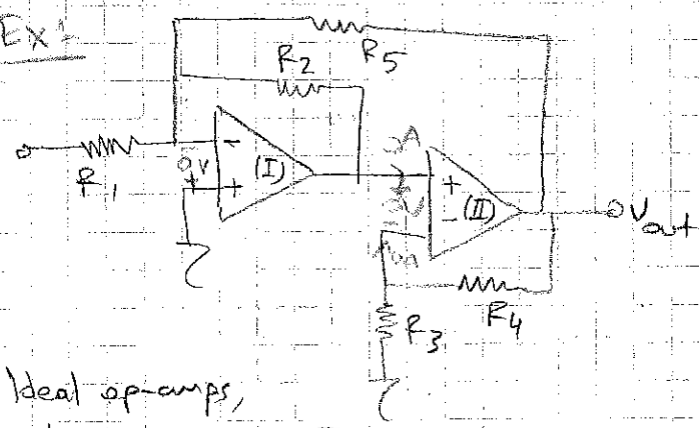 Ex:
R5
R2
R1
0V
-
+
(I)
0A
+
-
(II)
Vout
0A
R4
R3
Ideal op-amps,